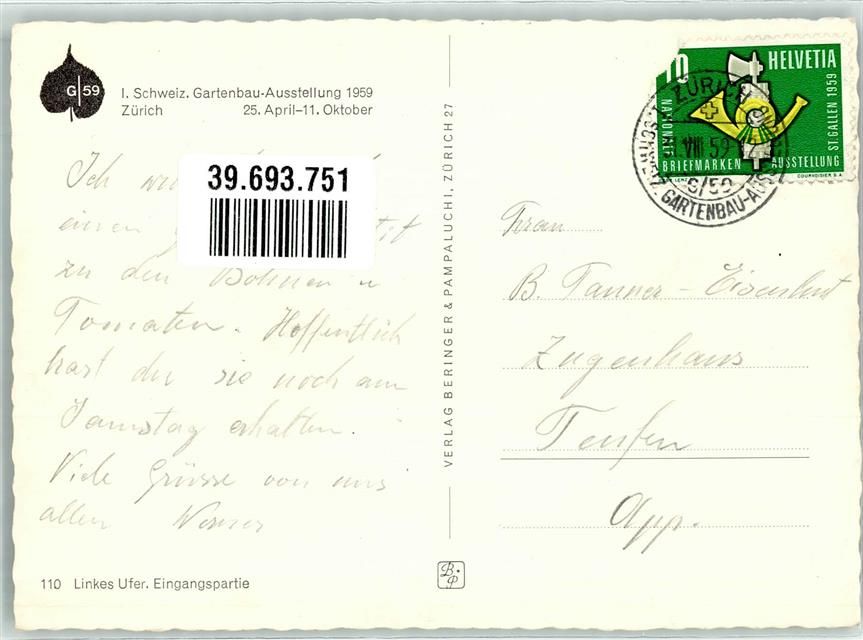 G|59
I. Schweiz. Gartenbau-Ausstellung 1959
Zürich 25. April–11. Oktober
39.693.751
Ich
einen
zu den Bohnen u
Tomaten. Hoffentlich
hast du sie noch am
Samstag erhalten.
Viele Grüsse von uns
allen Werner
110 Linkes Ufer. Eingangspartie
VERLAG BERINGER & PAMPALUCHI, ZÜRICH 27
B.P
10 HELVETIA
NATIONALE
BRIEFMARKEN AUSSTELLUNG
ST. GALLEN 1959
COURVOISIER S.A.
ZÜRICH
VIII 59
G/59
SCHWEIZ. GARTENBAU-AUSST
Frau
B. Tanner - Eisenhut
Zugenhaus
Teufen
App.